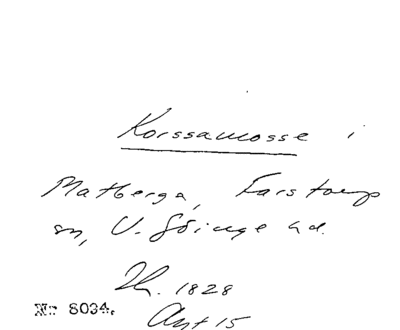 Korssamosse i
Matberga, Farstorp
sn, V. Göinge hd.
Th. 1828
Ant 15
Nr 8034.